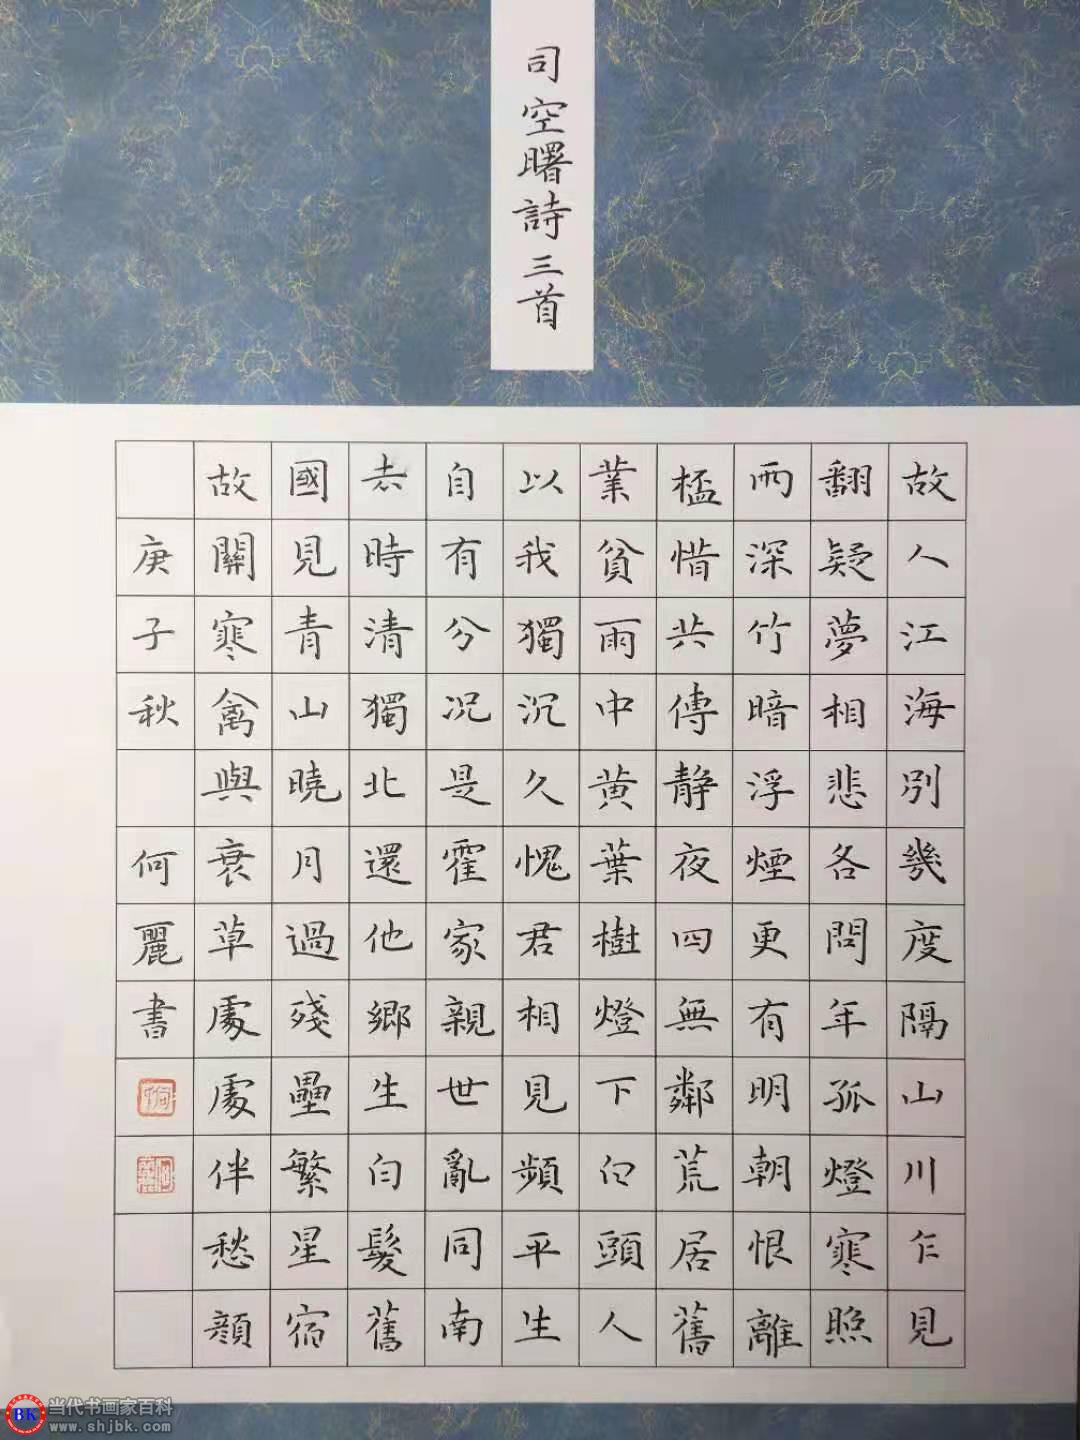 司空曙詩三首
故人江海別幾度隔山川乍見
翻疑夢相悲各問年孤燈寒照
雨深竹暗浮煙更有明朝恨離
杯惜共傳靜夜四無鄰荒居舊
業貧雨中黄葉樹燈下白頭人
以我獨沉久愧君相見頻平生
自有分况是霍家親世亂同南
去時清獨北還他鄉生白髮舊
國見青山曉月過殘壘繁星宿
故關寒禽與衰草處處伴愁顔
庚子秋 何麗書
BK 当代书画家百科
www.shjbk.com